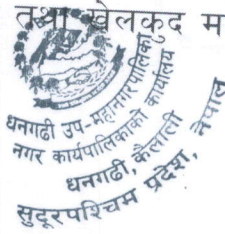 तथा खेलकुद म
धनगढी उप-महानगरपालिका
नगर कार्यपालिकाको कार्यालय
धनगढी, कैलाली
सुदूरपश्चिम प्रदेश, नेपाल